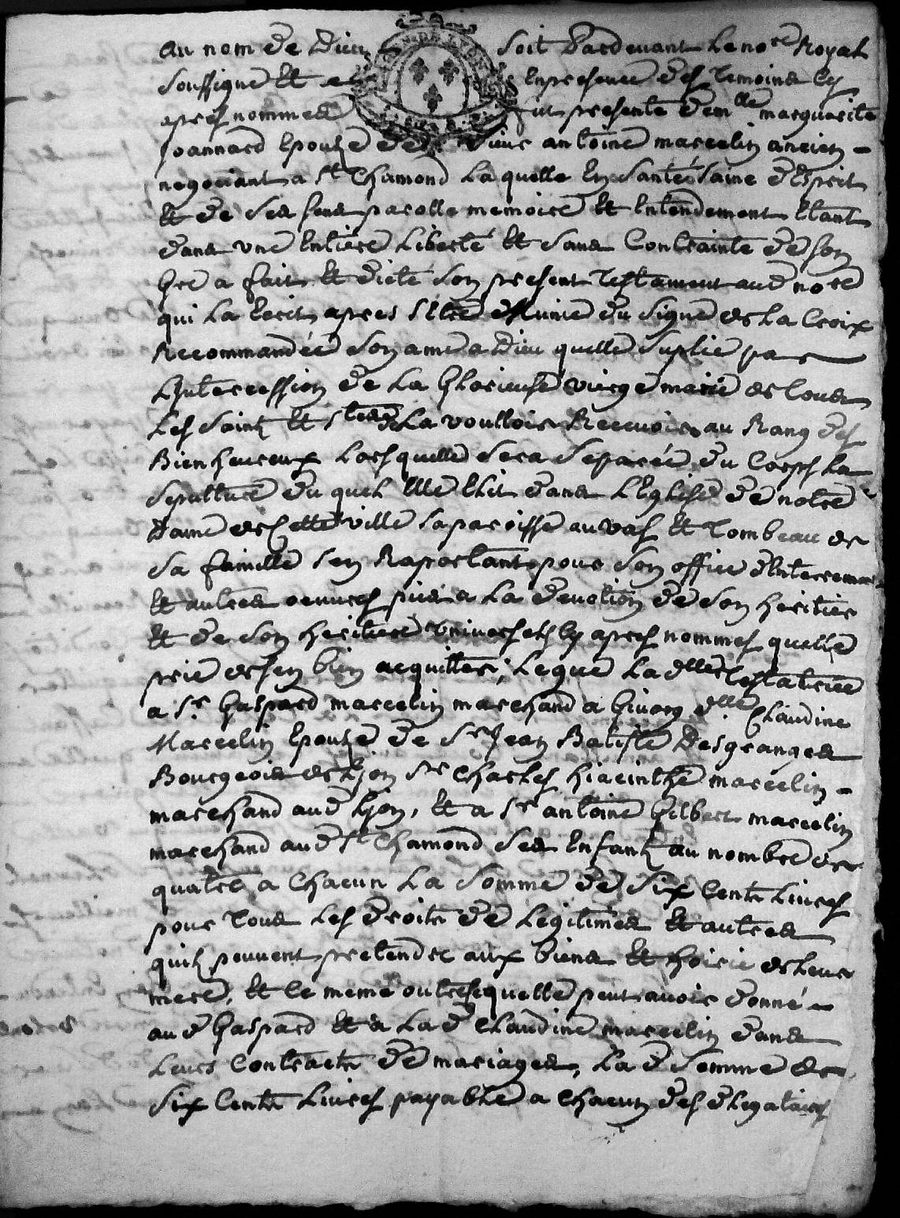 au nom de Dieu soit Pardevant Le no.re Royal
soussigné Et en presence des Temoins cy
apres nommes fut presente dem.lle marguerite
Joannard Epouze de Sieur antoine marcelin ancien
negociant a S.t Chamond Laquelle En Santé, Saine d'Esprit
Et de Ses sens parolle memoire Et Entendement Etant
dans vne Entiere Liberté Et Sans Contrainte de son
Gré a fait Et dicté Son present Testament aud no.re
qui La Ecrit apres S'Etre Munie du Signe de La Croix
Recommandée Son ame a Dieu quelle Suplie par
L'Intercession de La Glorieuse vierge marie de tous
Les Saints Et S.tes de La voulloir Recevoir au Rang des
Bienheureux Lorsquelle sera Separée du Corps La
Sepulture du quel Elle Elit dans L'Eglise de notre
Dame de Cette ville Sa paroisse au vas Et Tombeau de
Sa famille S'en Raportant pour Son office d'Enterrement
Et autres oeuvres pies a La devotion de Son heritier
Et de Son heritiere vniversels cy apres nommes quelle
prie de S'en bien acquitter; Legue La d.lle Testatrice
a S.r Gaspard marcelin marchand a Givors d.lle Claudine
Marcelin Epouze de S.r Jean Batiste Desgranges
Bourgeois de Lyon S.r Charles hiacinthe marcelin
marchand aud Lyon, Et a S.r antoine Gilbert marcelin
marchand aud S.t Chamond Ses Enfants au nombre de
quatre, a Chacun La Somme de Six Cents Livres
pour Tous Les droits de Legitimes Et autres
quils peuvent pretendre aux biens Et hoirie de Leur
mere, Et Ce meme outre Ce quelle peut avoir donné
aud Gaspard Et a Lad Claudine marcelin dans
Leurs Contracts de mariages, La d Somme de
Six Cents Livres payable a Chacun des d Legataires